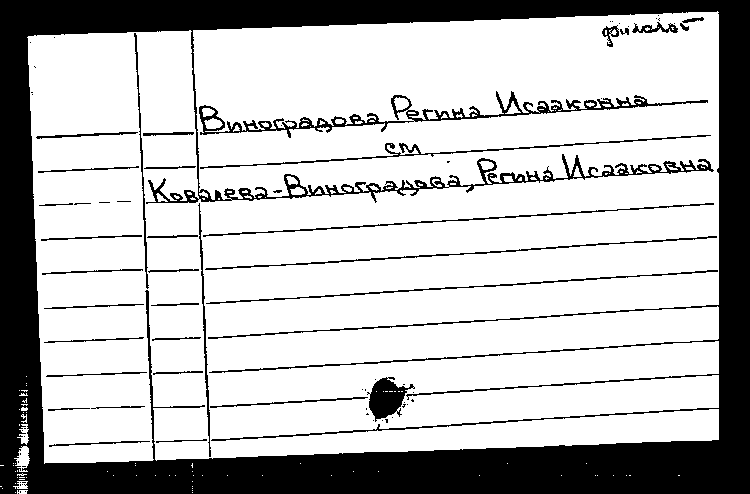 филолог
Виноградова, Регина Исааковна
см.
Ковалева-Виноградова, Регина Исааковна.